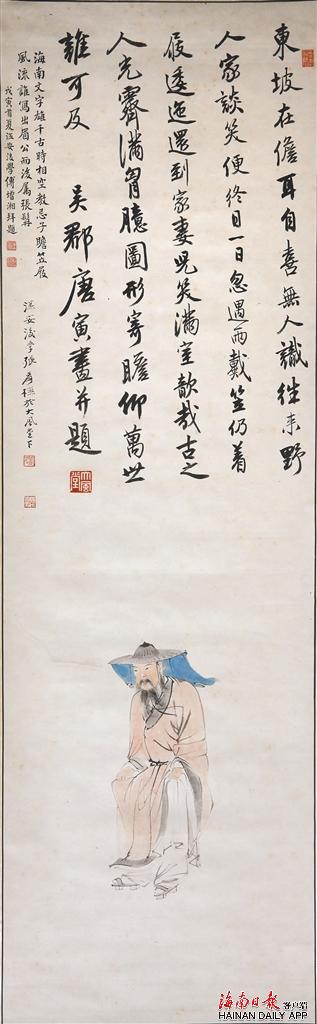 東坡在儋耳自喜無人識往来野
人家談笑便終日一日忽遇雨戴笠仍着
屐逶迤還到家妻児笑滿室歆哉古之
人光霽滿胷臆圖形寄瞻仰萬世
誰可及 吴郡唐寅畫并題
大風堂
海南文字雄千古時相空教忌子瞻笠屐
風流誰寫出眉公而後屬張髯
戊寅首夏江安後學傅增湘拜題
後學張爰橅於大風堂下
海南日报 客户端
HAINAN DAILY APP